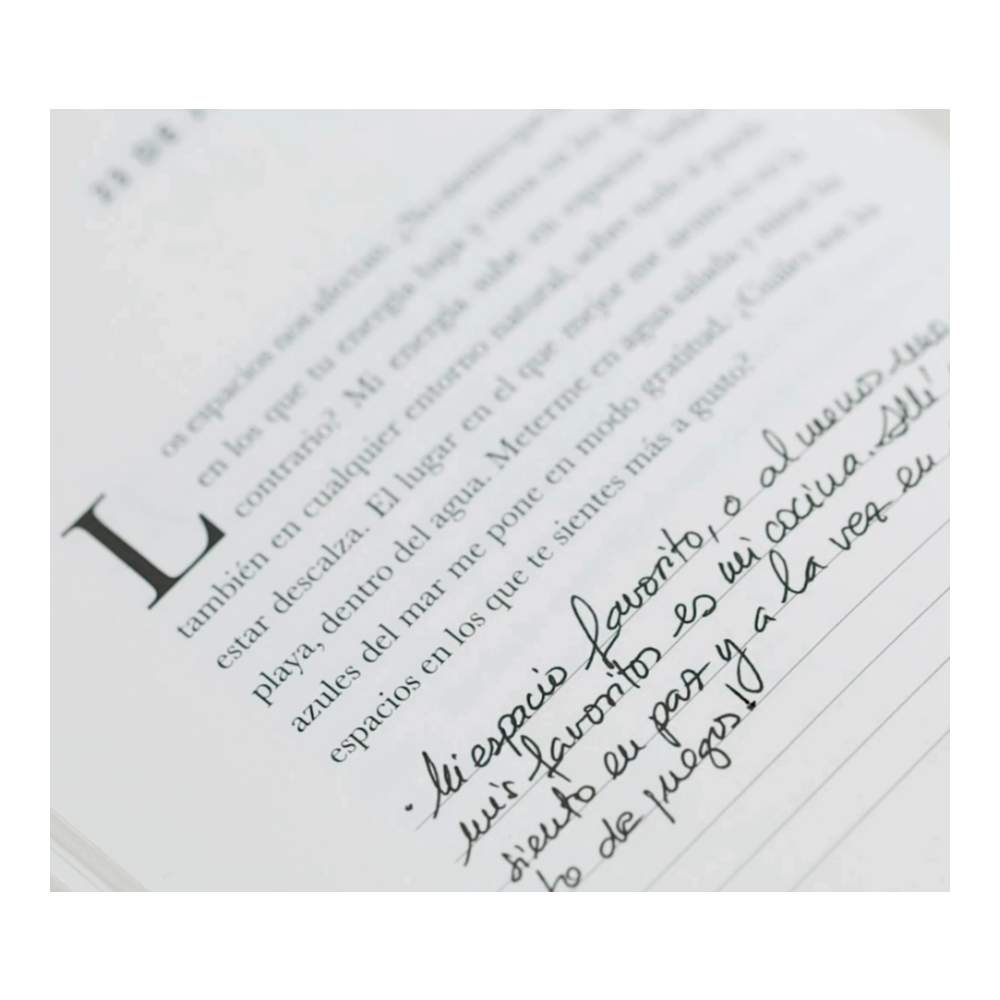 23 DE
Los espacios nos afectan. ¿No
en los que tu energía baja y otros en los que
contrario? Mi energía sube en espacios
también en cualquier entorno natural, sobre todo si puedo
estar descalza. El lugar en el que mejor me siento es en la
playa, dentro del agua. Meterme en agua salada y mirar los
azules del mar me pone en modo gratitud. ¿Cuáles son los
espacios en los que te sientes más a gusto?
· Mi espacio favorito, o al menos uno
mis favoritos es mi cocina. Allí
siento en paz y a la vez en
to de juegos!